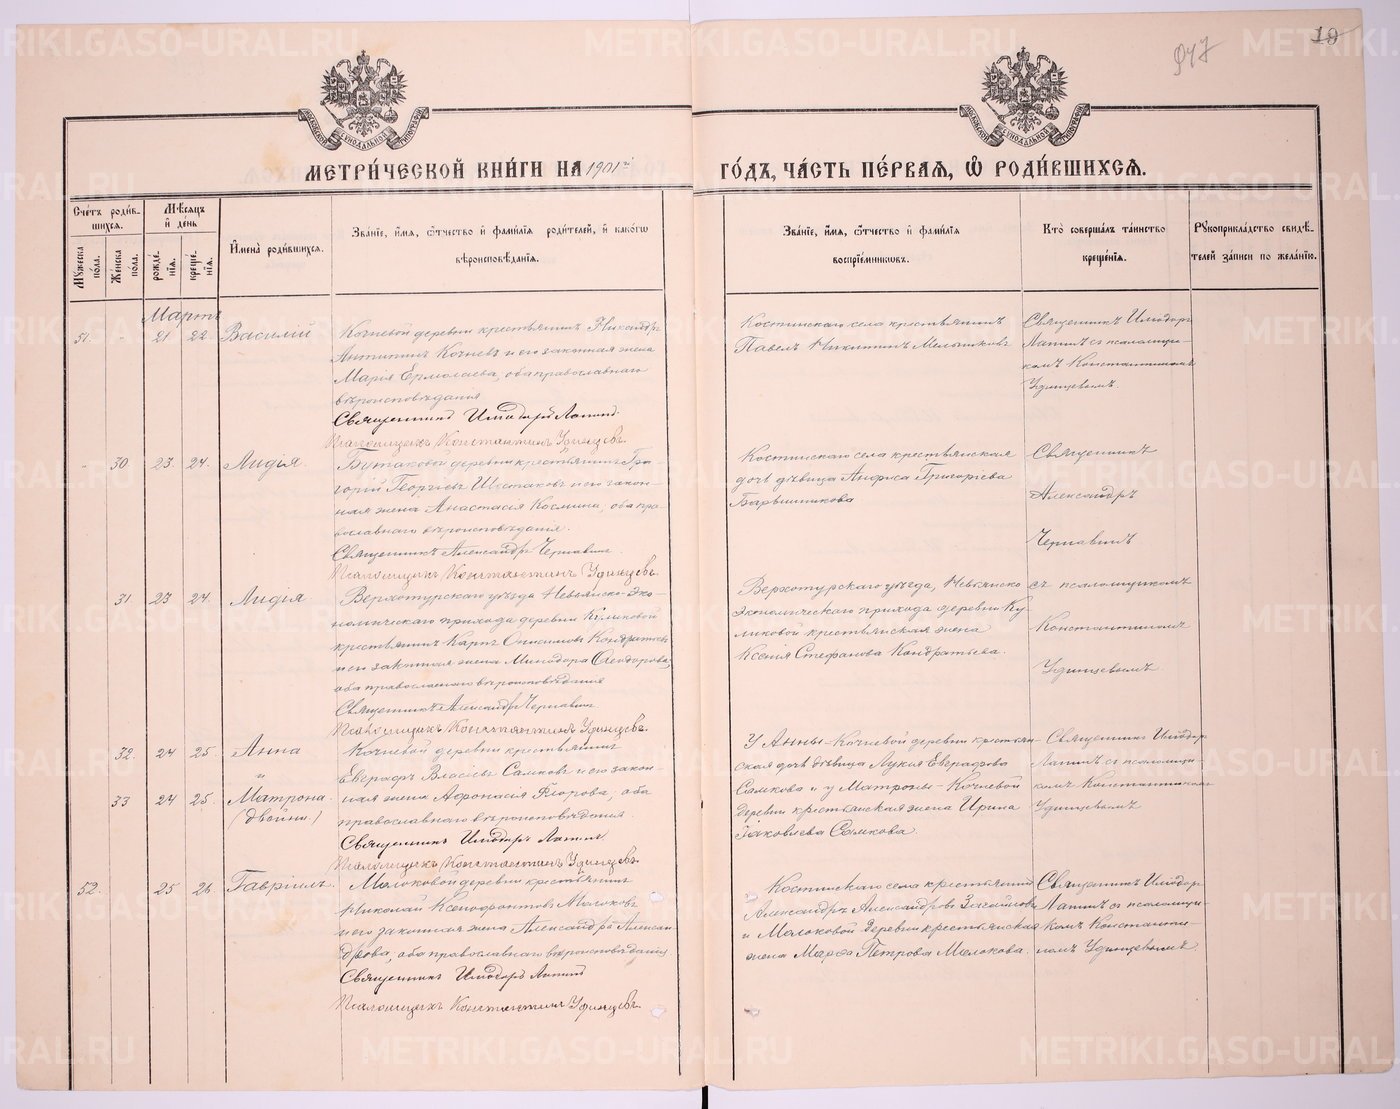 947
19
МЕТРИ́ЧЕСКОЙ КНИ́ГИ НА 1901й
ГО́ДЪ, ЧА́СТЬ ПЕ́РВАЯ, Ѡ҆ РОДИ́ВШИХСЯ.
Сче́тъ роди́в-
шихся.
Мꙋ́жеска по́ла.
Же́нска по́ла.
Мѣ́сяцъ и҆ де́нь
рожде́нїя.
креще́нїя.
И҆мена̀ роди́вшихся.
Зва́нїе, и҆́мя, ѻ҆́тчество и҆ фами́лїя роди́телей, и҆ како́гѡ
вѣроисповѣ́данїя.
Зва́нїе, и҆́мя, ѻ҆́тчество и҆ фами́лїя
воспрїе́мниковъ.
Кто̀ соверша́лъ та́инство
креще́нїя.
Рꙋкоприкла́дство свидѣ́-
телей за́писи по жела́нїю.
Мартъ
51. - 21 22 Василій
Кочневой деревни крестьянинъ Никандръ
Антипинъ Кочневъ и его законная жена
Марія Ермолаева, оба православнаго
вѣроисповѣданія
Священникъ Илиодоръ Лапинъ.
Псаломщикъ Константинъ Удинцевъ.
Костинскаго села крестьянинъ
Павелъ Никитинъ Мельниковъ
Священникъ Илиодоръ
Лапинъ съ псаломщи-
комъ Константиномъ
Удинцевымъ.
30. 23. 24. Лидія.
Бутаковой деревни крестьянинъ Гри-
горій Георгіевъ Шестаковъ и его закон-
ная жена Анастасія Космина, оба пра-
вославнаго вѣроисповѣданія.
Священникъ Александръ Чернавинъ.
Псаломщикъ Константинъ Удинцевъ.
Костинскаго села крестьянская
дочь дѣвица Анфиса Григоріева
Барышникова
Священникъ
Александръ
Чернавинъ
31. 23 24. Лидія
Верхотурскаго уѣзда Невьянско-Эко-
номическаго прихода деревни Куликовой
крестьянинъ Карпъ Онисимовъ Кондратьевъ
и его законная жена Минодора Ѳеодорова,
оба православнаго вѣроисповѣданія
Священникъ Александръ Чернавинъ
Псаломщикъ Константинъ Удинцевъ.
Верхотурскаго уѣзда, Невьянско
Экономическаго прихода деревни Ку-
ликовой крестьянская жена
Ксенія Стефанова Кондратьева.
съ псаломщикомъ
Константиномъ
Удинцевымъ.
32. 24 25. Анна
и
33 24 25. Матрона
/двойни./
Кочневой деревни крестьянинъ
Евграфъ Власіевъ Самковъ и его закон-
ная жена Афонасія Флорова, оба
православнаго вѣроисповѣданія.
Священникъ Илиодоръ Лапинъ.
Псаломщикъ Константинъ Удинцевъ.
У Анны - Кочневой деревни крестьян-
ская дочь дѣвица Лукія Евграфова
Самкова и у Матроны - Кочневой
деревни крестьянская жена Ирина
Іаковлева Самкова.
Священникъ Илиодоръ
Лапинъ съ псаломщи-
комъ Константиномъ
Удинцевымъ
52. 25 26. Гавріилъ
Молоковой деревни крестьянинъ
Николай Ксенофонтовъ Молоковъ
и его законная жена Александра Алексан-
дрова, оба православнаго вѣроисповѣданія
Священникъ Илиодоръ Лапинъ
Псаломщикъ Константинъ Удинцевъ.
Костинскаго села крестьянинъ
Александръ Александровъ
и Молоковой деревни крестьянская
жена Марѳа Петрова Молокова.
Священникъ Илиодоръ
Лапинъ съ псаломщи-
комъ Константи-
номъ Удинцевымъ
METRIKI.GASO-URAL.RU